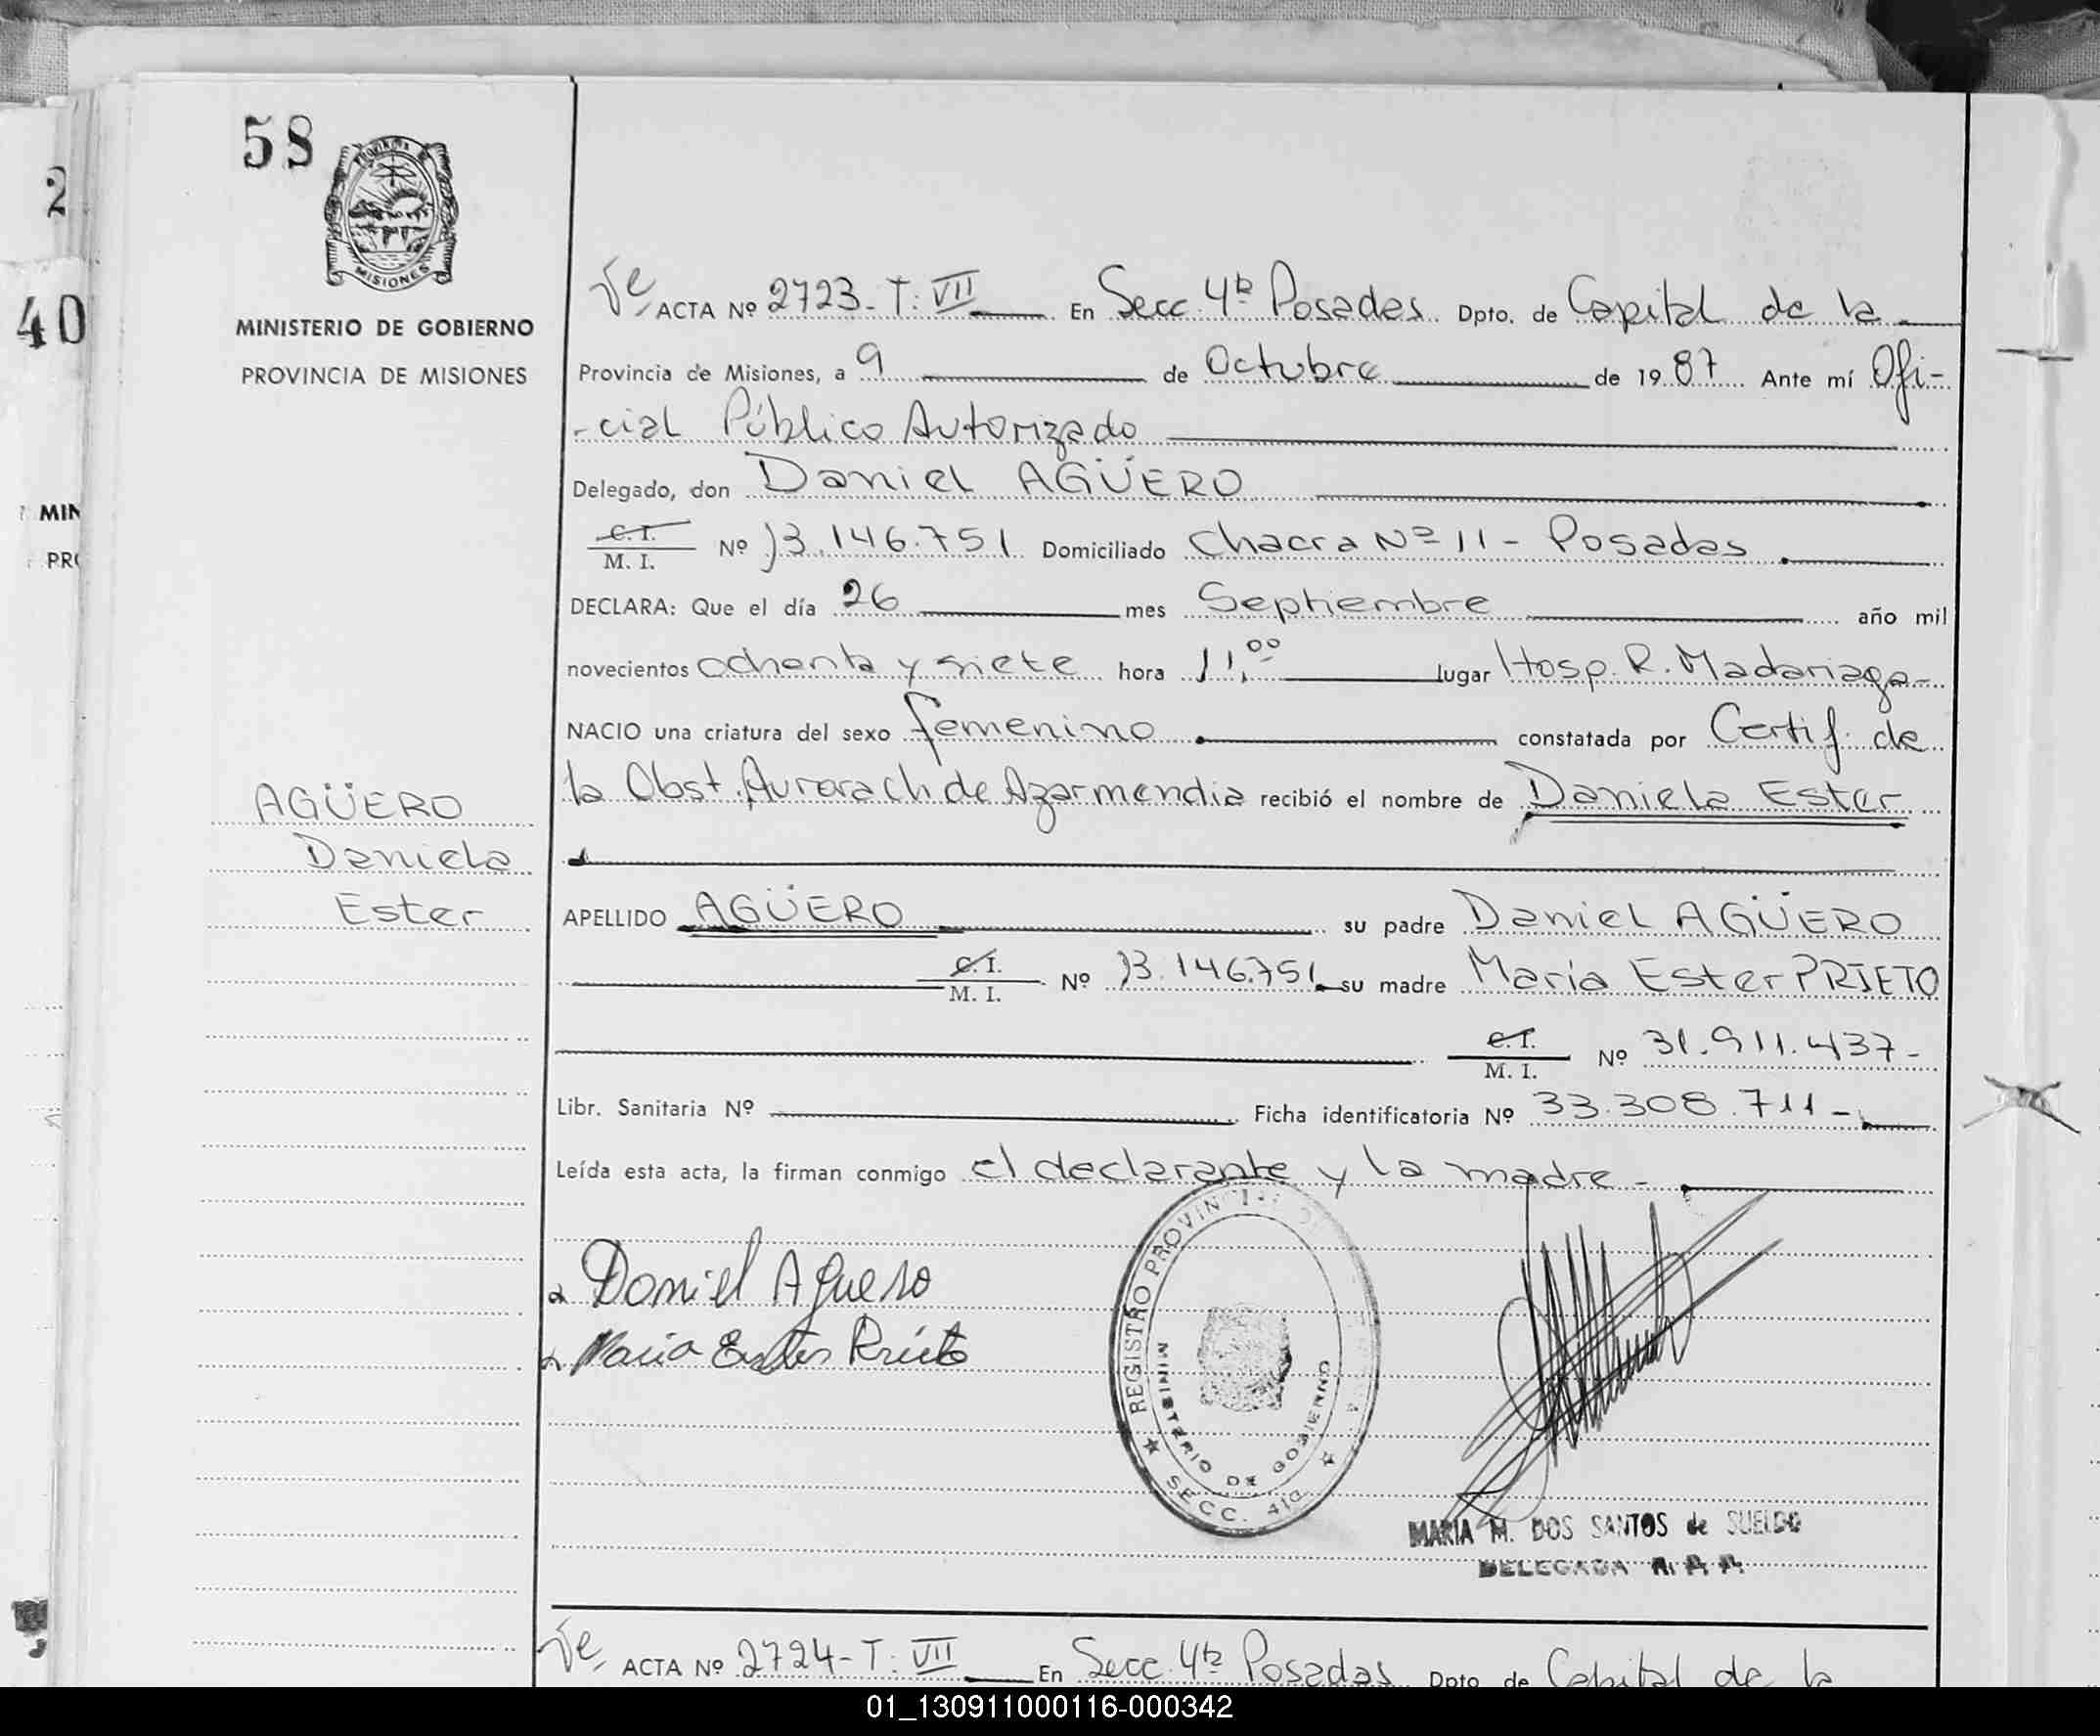 58
PROVINCIA
MISIONES
MINISTERIO DE GOBIERNO
PROVINCIA DE MISIONES
2
40
MIN
PRO
AGÜERO
Daniela
Ester
ACTA Nº 2723-T: VII En Secc 4ta Posadas Dpto. de Capital de la
Provincia de Misiones, a 9 de Octubre de 1987 Ante mí Ofi-
-cial Público Autorizado
Delegado, don Daniel AGÜERO
C.I.
M. I. Nº 13.146.751 Domiciliado Chacra Nº 11 - Posadas
DECLARA: Que el día 26 mes Septiembre año mil
novecientos ochenta y siete hora 11,00 lugar Hosp. R. Madariaga-
NACIO una criatura del sexo femenino constatada por Certif. de
la Obst. de Azarmendia recibió el nombre de Daniela Ester
APELLIDO AGÜERO su padre Daniel AGÜERO
C.I.
M. I. Nº 13.146.751 su madre María Ester PRIETO
C.I.
M. I. Nº 31.911.437-
Libr. Sanitaria Nº Ficha identificatoria Nº 33.308.711-
Leída esta acta, la firman conmigo el declarante y la madre-
Daniel Aguero
Maria Ester Prieto
REGISTRO PROVIN
MINISTERIO DE GOBIERNO
SECC. 4ta
MARIA M. DOS SANTOS de SUELDO
DELEGADA R. P. P.
ACTA Nº 2724-T: VII En Secc 4ta Posadas Dpto de Capital de la
01_130911000116-000342